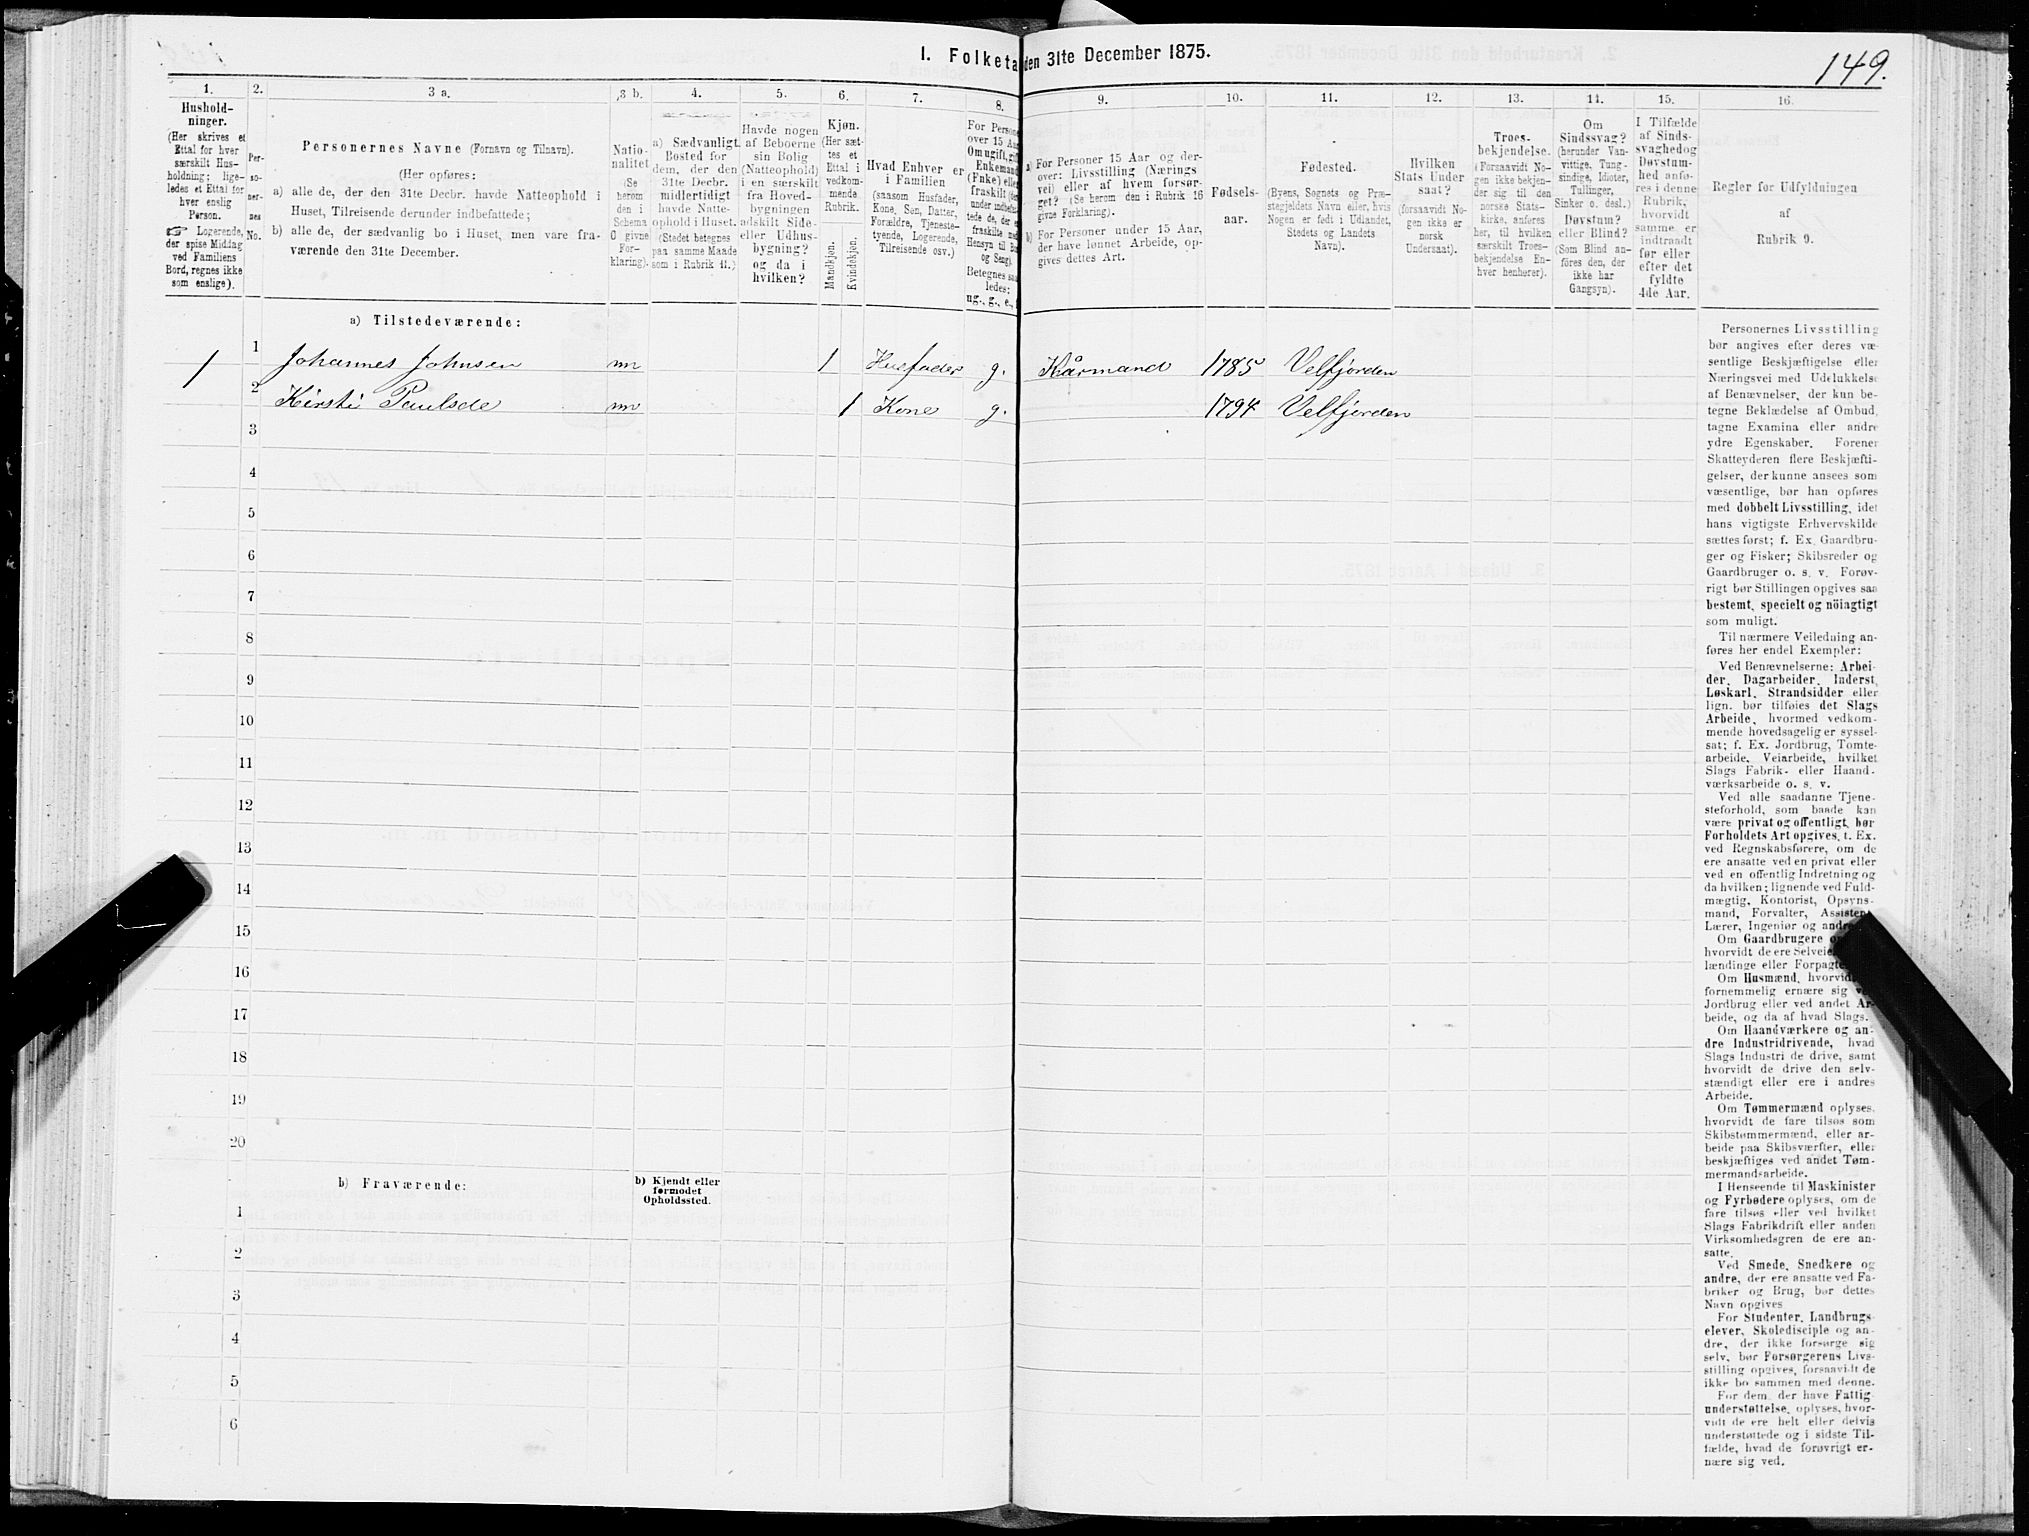 149.
1. Folketa den 31te December 1875.
1. 2. 3 a. 3 b. 4. 5. 6. 7. 8. 9. 10. 11. 12. 13. 14. 15. 16.
Hushold-
ninger.
(Her skrives et
Ettal for hver
særskilt Hus-
holdning; lige-
ledes et Ettal for
hver enslig
Person.
☞ Logerende,
der spise Middag
ved Familiens
Bord, regnes ikke
som enslige).
Per-
so-
ner-
nes
No.
Personernes Navne (Fornavn og Tilnavn).
(Her opføres:
a) alle de, der den 31te Decbr. havde Natteophold i
Huset, Tilreisende derunder indbefattede;
b) alle de, der sædvanlig bo i Huset, men vare fra-
værende den 31te December.
Natio-
nalitet
(Se
herom
den i
Schema
O givne
For-
klaring).
a) Sædvanligt
Bosted for
dem, der den
31te Decbr.
midlertidigt
havde Natte-
ophold i Huset.
(Stedet betegnes
paa samme Maade
som i Rubrik 11.)
Havde nogen
af Beboerne
sin Bolig
(Natteophold)
i en særskilt
fra Hoved-
bygningen
adskilt Side-
eller Udhus-
bygning?
og da i
hvilken?
Kjøn.
(Her sæt-
tes et
Ettal i
vedkom-
mende
Rubrik.
Mandkjøn.
Kvindekjøn.
Hvad Enhver er
i Familien
(saasom Husfader,
Kone, Søn, Datter,
Forældre, Tjeneste-
tyende, Logerende,
Tilreisende osv.)
For Persone
over 15 Aar
Om ugift, gift
Enkemand
(Fnke) eller
fraskilt
Hensyn til Bo
og Seng).
Betegnes saa
ledes:
ug., g., e.,
a) For Personer 15 Aar og der-
over: Livsstilling (Nærings
vei) eller af hvem forsør-
get? (Se herom den i Rubrik 16
givne Forklaring.)
b) For Personer under 15 Aar,
der have lønnet Arbeide, op-
gives dettes Art.
Fødsels-
aar.
Fødested.
(Byens, Sognets og Præ-
stegjeldets Navn eller, hvis
Nogen er født i Udlandet,
Stedets og Landets
Navn).
Hvilken
Stats Under
saat?
(forsaavidt No-
gen ikke er
norsk
Undersaat).
Troes-
bekjendelse.
(Forsaavidt No-
gen ikke bekjen-
der sig til den
norske Stats-
kirke, anføres
her, til hvilken
særskilt Troes-
bekjendelse En-
hver henhører).
Om
Sindssvag?
(herunder Van-
vittige, Tung-
sindige, Idioter,
Tullinger,
Sinker o. desl.)
Døvstum?
eller Blind?
(Som Blind an-
føres den, der
ikke har
Gangsyn).
I Tilfælde
af Sinds-
svaghed og
Døvstum-
hed anfø-
res i denne
Rubrik,
hvorvidt
samme er
indtraadt
før eller
efter det
fyldte
4de Aar.
Regler for Udfyldningen
af
Rubrik 9.
a) Tilstedeværende:
1 1 Johannes Johnsen nn 1 Husfader g. Kårmand 1785 Velfjorden
2 Kirsti Paulsdr nn 1 Kone g. 1794 Velfjorden
3
4
5
6
7
8
9
10
11
12
13
14
15
16
17
18
19
20
b) Fraværende:
b) Kjendt eller
formodet
Opholdssted.
1
2
3
4
5
6
Personernes Livsstilling
bør angives efter deres væ-
sentlige Beskjæftigelse eller
Næringsvei med Udelukkelse
af Benævnelser, der kun be-
tegne Beklædelse af Ombud,
tagne Examina eller andre
ydre Egenskaber. Forener
Skatteyderen flere Beskjæfti-
gelser, der kunne ansees som
væsentlige, bør han opføres
med dobbelt Livsstilling, idet
hans vigtigste Erhvervskilde
sættes først; f. Ex. Gaardbru-
ger og Fisker; Skibsreder og
Gaardbruger o. s. v. Forøv-
rigt bør Stillingen opgives saa
bestemt, specielt og nöiagtigt
som muligt.
Til nærmere Veiledning an-
føres her endel Exempler:
Ved Benævnelserne: Arbei-
der, Dagarbeider, Inderst,
Løskarl, Strandsidder eller
lign. bør tilføies det Slags
Arbeide, hvormed vedkom-
mende hovedsagelig er syssel-
sat; f. Ex. Jordbrug, Tomte-
arbeide, Veiarbeide, hvilket
Slags Fabrik- eller Haand-
værksarbeide o. s. v.
Ved alle saadanne Tjene-
steforhold, som baade kan
være privat og offentligt, bør
Forholdets Art opgives, t. Ex.
ved Regnskabsførere, om de
ere ansatte ved en privat eller
ved en offentlig Indretning og
da hvilken; lignende ved Fuld-
mægtig, Kontorist, Opsyns-
mand, Forvalter, Assisten
Lærer, Ingeniør og andre
Om Gaardbrugere
hvorvidt de ere Selveie
lændinge eller Forpagte
Om Husmænd, hvorvid
fornemmelig ernære sig
Jordbrug eller ved andet Ar-
beide, og da af hvad Slags.
Om Haandværkere og an-
dre Industridrivende, hvad
Slags Industri de drive, samt
hvorvidt de drive den selv-
stændigt eller ere i andres
Arbeide.
Om Tømmermænd oplyses,
hvorvidt de fare tilsøs som
Skibstømmermænd, eller ar-
beide paa Skibsværfter, eller
beskjæftiges ved andet Tøm-
mermandsarbeide.
I Henseende til Maskinister
og Fyrbødere oplyses, om de
fare tilsøs eller ved hvilket
Slags Fabrikdrift eller anden
Virksomhedsgren de ere an-
satte.
Ved Smede, Snedkere og
andre, der ere ansatte ved Fa-
briker og Brug, bør dettes
Navn opgives
For Studenter, Landbrugs
elever, Skoledisciple og an-
dre, der ikke forsørge sig
selv, bør Forsørgerens Livs-
stilling opgives, forsaavidt de
ikke bo sammen med denne.
For dem, der have Fattig
understøttelse, oplyses, hvor-
vidt de ere helt eller delvis
understøttede og i sidste Til-
fælde, hvad de forøvrigt er-
nære sig ved.